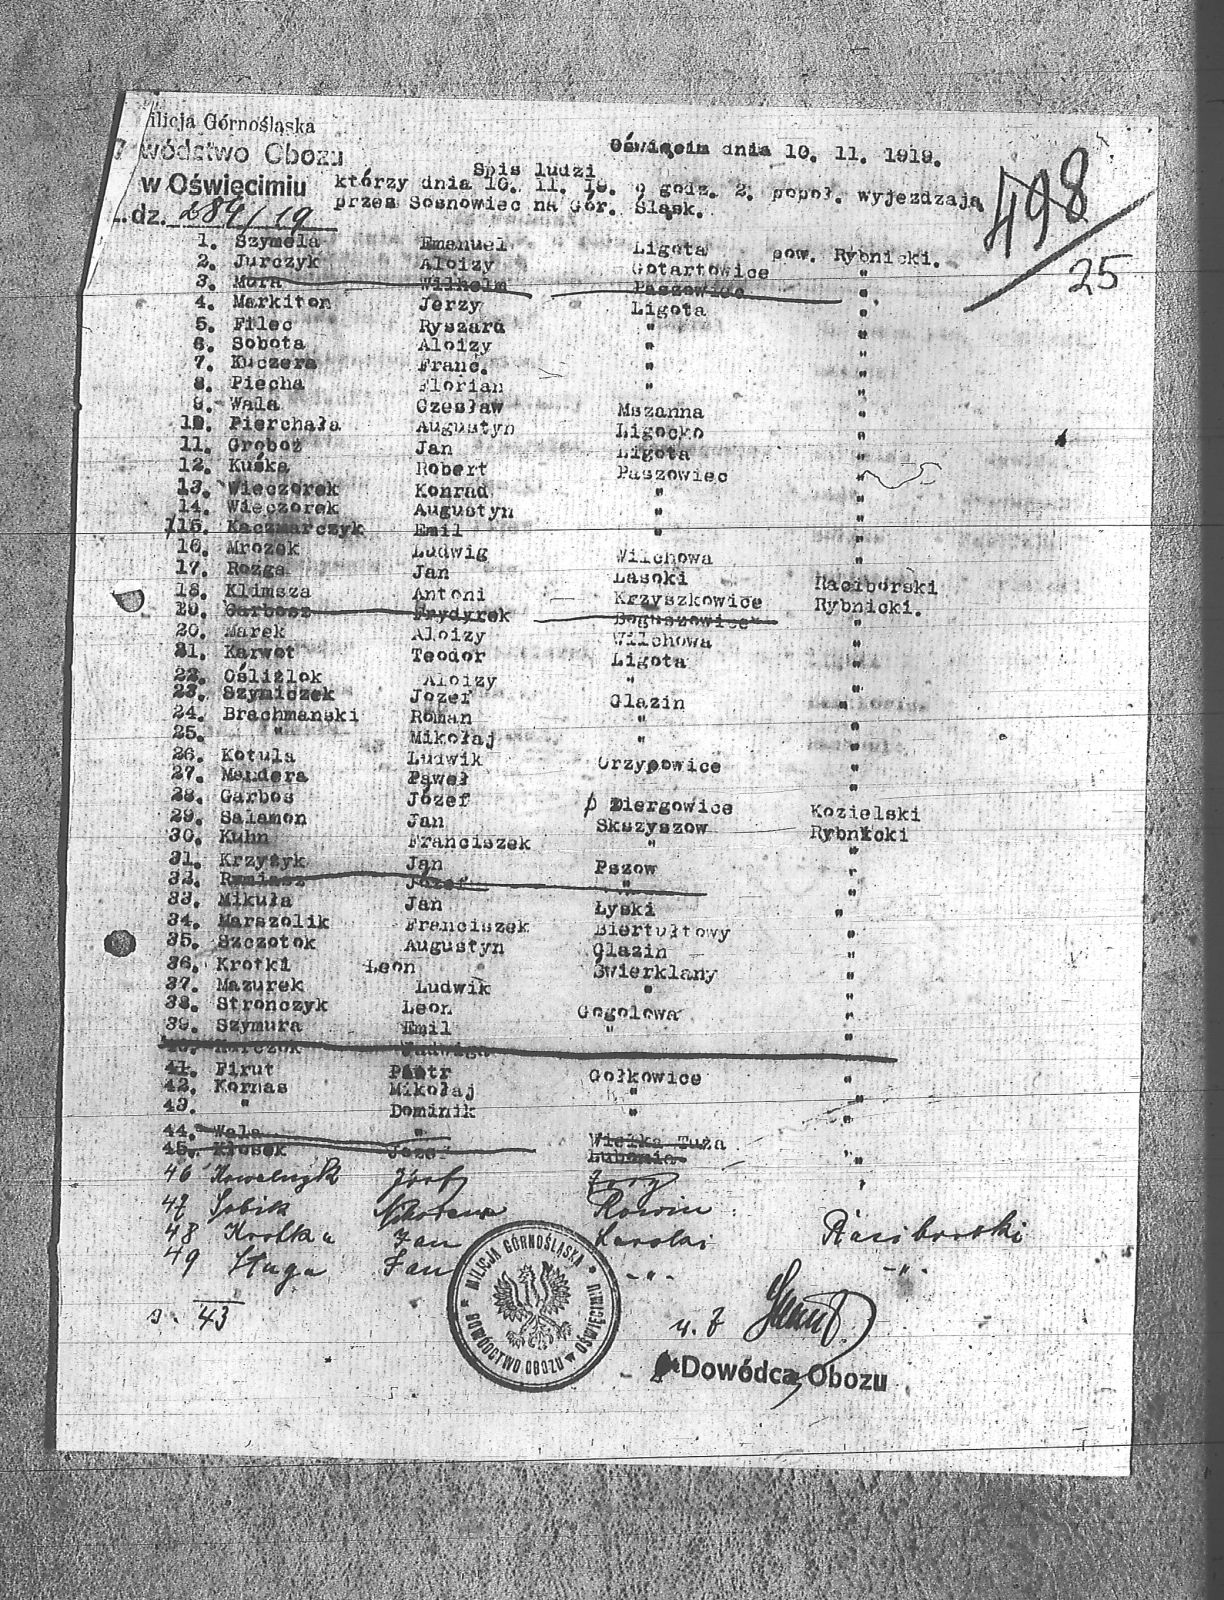 ilicja Górnośląska
wództwo Obozu
w Oświęcimiu
dz. 284/19
Oświęcim dnia 10. 11. 1919.
Spis ludzi
którzy dnia 10. 11. 19. o godz. 2. popoł. wyjezdzają
przez Sosnowiec na Gór. Śląsk.
498
25
1. Szymela Emanuel Ligota pow. Rybnicki.
2. Jurczyk Aloizy Gotartowice "
3. Mora Wilhelm Paszowiec "
4. Markiton Jerzy Ligota "
5. Filec Ryszard " "
6. Sobota Aloizy " "
7. Kuczera Franc. " "
8. Piecha Florian " "
9. Wala Czesław Mszanna "
10. Pierchała Augustyn Ligocko "
11. Groboż Jan Ligota "
12. Kuśka Robert Paszowiec "
13. Wieczorek Konrad " "
14. Wieczorek Augustyn " "
15. Kaczmarczyk Emil " "
16. Mrozek Ludwig Wilchowa "
17. Rozga Jan Lasoki Raciborski
18. Klimsza Antoni Krzyszkowice Rybnicki.
19. Garbosz Frydyrek Boguszowice "
20. Marek Aloizy Wilchowa "
21. Karwot Teodor Ligota "
22. Ośliźlok Aloizy " "
23. Szymiczek Jozef Glazin "
24. Brachmanski Roman " "
25. " Mikołaj " "
26. Kotula Ludwik Grzypowice "
27. Mandera Paweł "
28. Garbos Józef Dziergowice Kozielski
29. Salamon Jan Skszyszow Rybnicki
30. Kuhn Franciszek " "
31. Krzyżyk Jan Pszow "
32. Józef " "
33. Mikuła Jan Łyski "
34. Marszolik Franciszek Biertułtowy "
35. Szczotok Augustyn Glazin "
36. Krotki Leon Świerklany "
37. Mazurek Ludwik " "
38. Stronczyk Leon Gogolowa "
39. Szymura Emil " "
41. Firut Piotr Gołkowice "
42. Kornas Mikołaj " "
43. " Dominik " "
44. Wala " Wielka Tuża
45. Kłosek Jozef Lubomia "
46 Kowalczyk Józef Żory "
47 Sobik Rowin
48 Krotka Jan Raciborski
49 Sługa Jan -"- -"-
s. 43
MILICJA GÓRNOŚLĄSKA
DOWÓDCTWO OBOZU w OŚWIĘCIMIU
Dowódca Obozu